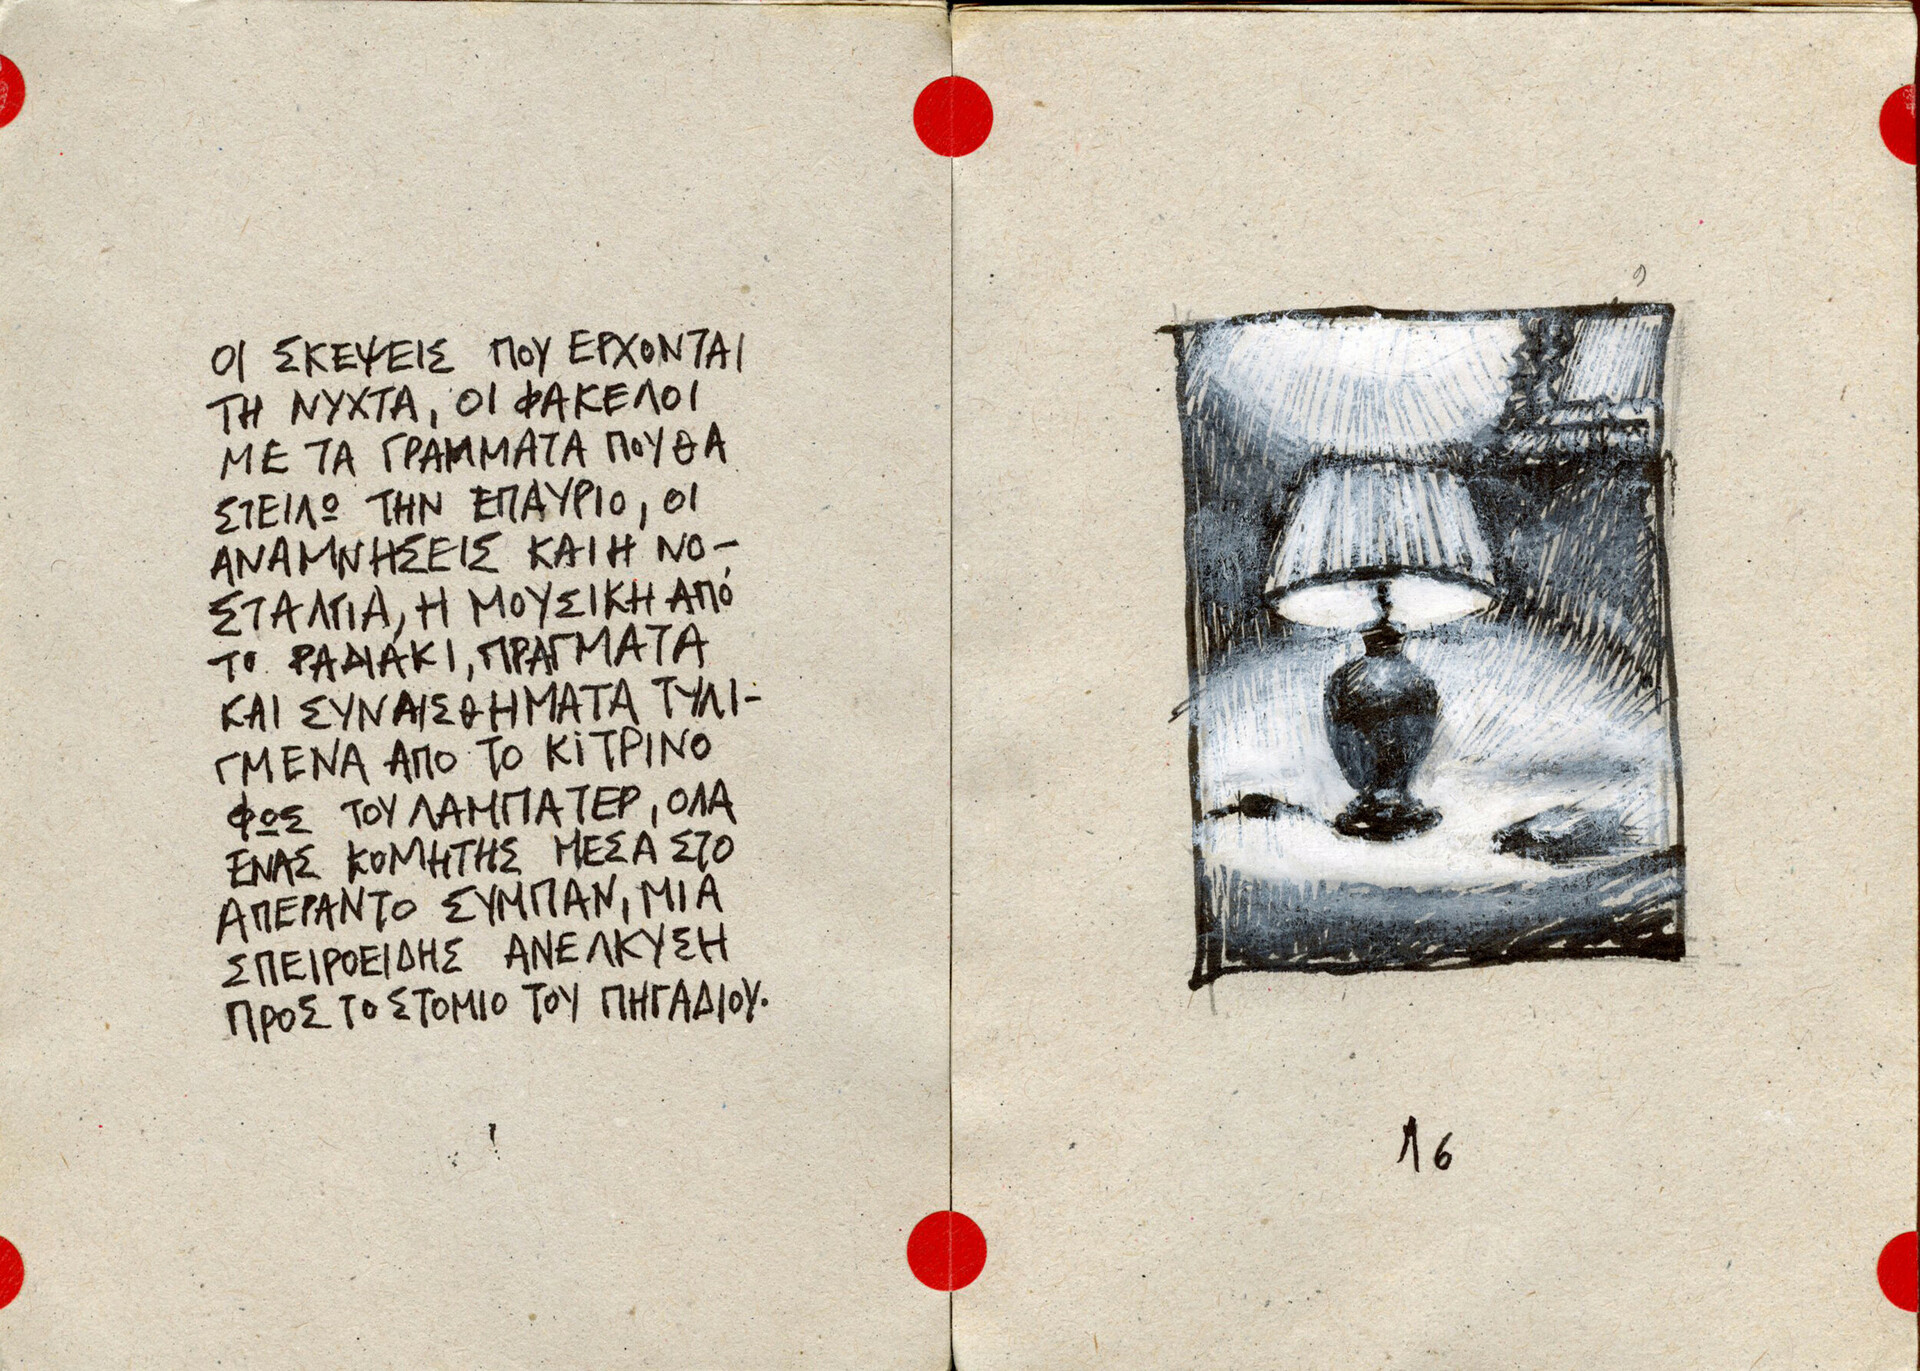 ΟΙ ΣΚΕΨΕΙΣ ΠΟΥ ΕΡΧΟΝΤΑΙ
ΤΗ ΝΥΧΤΑ, ΟΙ ΦΑΚΕΛΟΙ
ΜΕ ΤΑ ΓΡΑΜΜΑΤΑ ΠΟΥ ΘΑ
ΣΤΕΙΛΩ ΤΗΝ ΕΠΑΥΡΙΟ, ΟΙ
ΑΝΑΜΝΗΣΕΙΣ ΚΑΙ Η ΝΟ-
ΣΤΑΛΓΙΑ, Η ΜΟΥΣΙΚΗ ΑΠΌ
ΤΟ ΡΑΔΙΑΚΙ, ΠΡΑΓΜΑΤΑ
ΚΑΙ ΣΥΝΑΙΣΘΗΜΑΤΑ ΤΥΛΙ-
ΓΜΕΝΑ ΑΠΟ ΤΟ ΚΙΤΡΙΝΟ
ΦΩΣ ΤΟΥ ΛΑΜΠΑΤΕΡ, ΟΛΑ
ΕΝΑΣ ΚΟΜΗΤΗΣ ΜΕΣΑ ΣΤΟ
ΑΠΕΡΑΝΤΟ ΣΥΜΠΑΝ, ΜΙΑ
ΣΠΕΙΡΟΕΙΔΗΣ ΑΝΕΛΚΥΣΗ
ΠΡΟΣ ΤΟ ΣΤΟΜΙΟ ΤΟΥ ΠΗΓΑΔΙΟΥ.
16